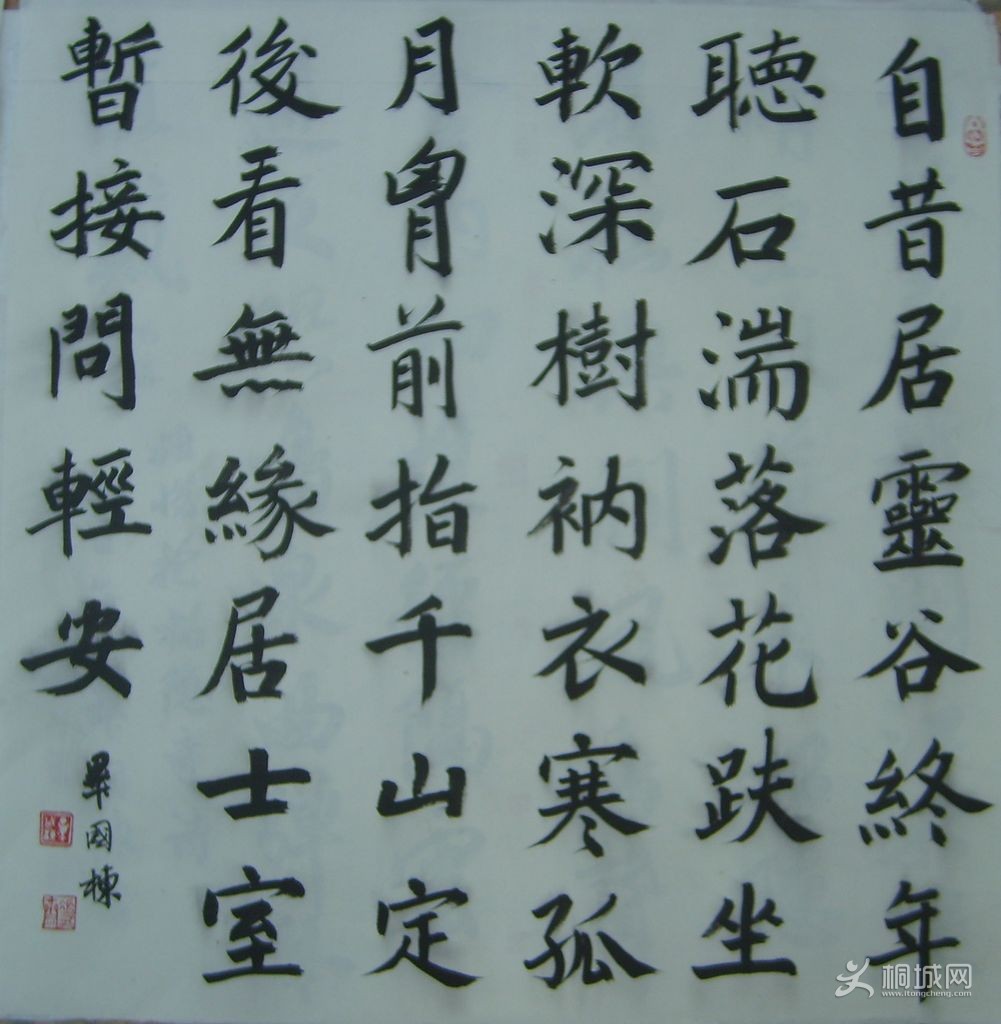 自昔居靈谷終年
聴石湍落花趺坐
軟深樹衲衣寒孤
月胷前指千山定
後看無緣居士室
暫接問輕安
畢國棟
桐城网
www.itongcheng.com